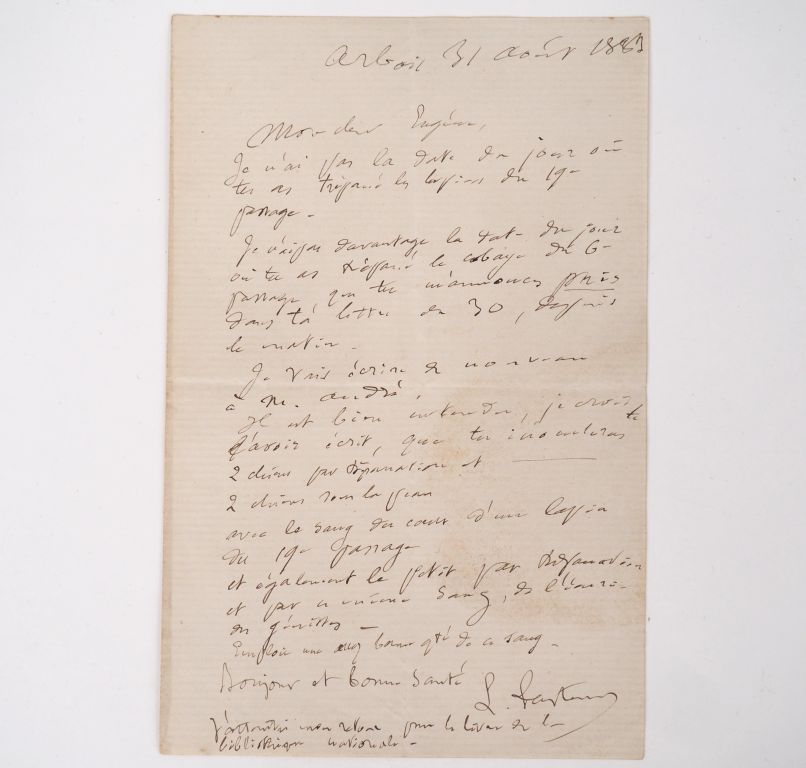 Arbois 31 août 1883
Mon cher Eugène,
Je n'ai pas la date du jour où
tu as trépané les lapins du 19e
passage.
Je n'ai pas davantage la date du jour
où tu as trépané le cobaye du 6e
passage, que tu m'annonces pris
dans ta lettre du 30, depuis
le matin.
Je vais écrire de nouveau
à M. André.
Il est bien entendu, je crois te
l'avoir écrit, que tu inoculeras
2 chiens par trépanation et
2 chiens sous la peau
avec le sang du cœur d'un lapin
du 19e passage
et également le petit par trépanation
et par ce même sang, de l'écurie
des génisses.
Emploie une assez bonne qté de ce sang.
Bonjour et bonne santé
L. Pasteur
J'attendrai mon retour pour le livre de la
bibliothèque nationale.